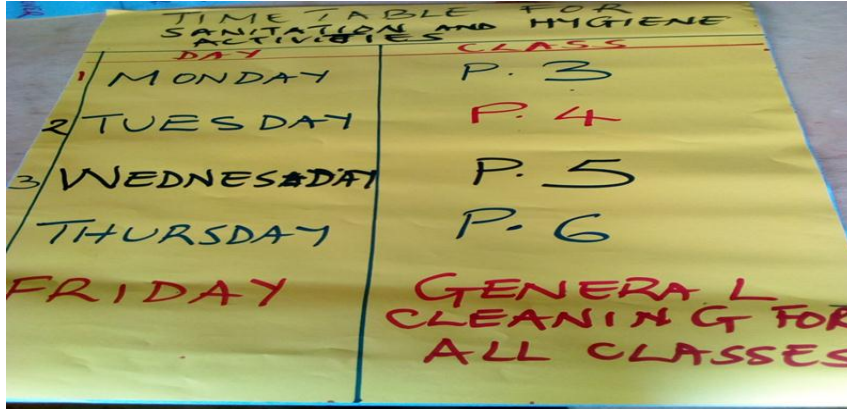 TIME TABLE FOR
SANITATION AND HYGIENE
ACTIVITIES
DAY CLASS
1 MONDAY P. 3
2 TUESDAY P. 4
3 WEDNESDAY P. 5
THURSDAY P. 6
FRIDAY GENERAL
CLEANING FOR
ALL CLASSES